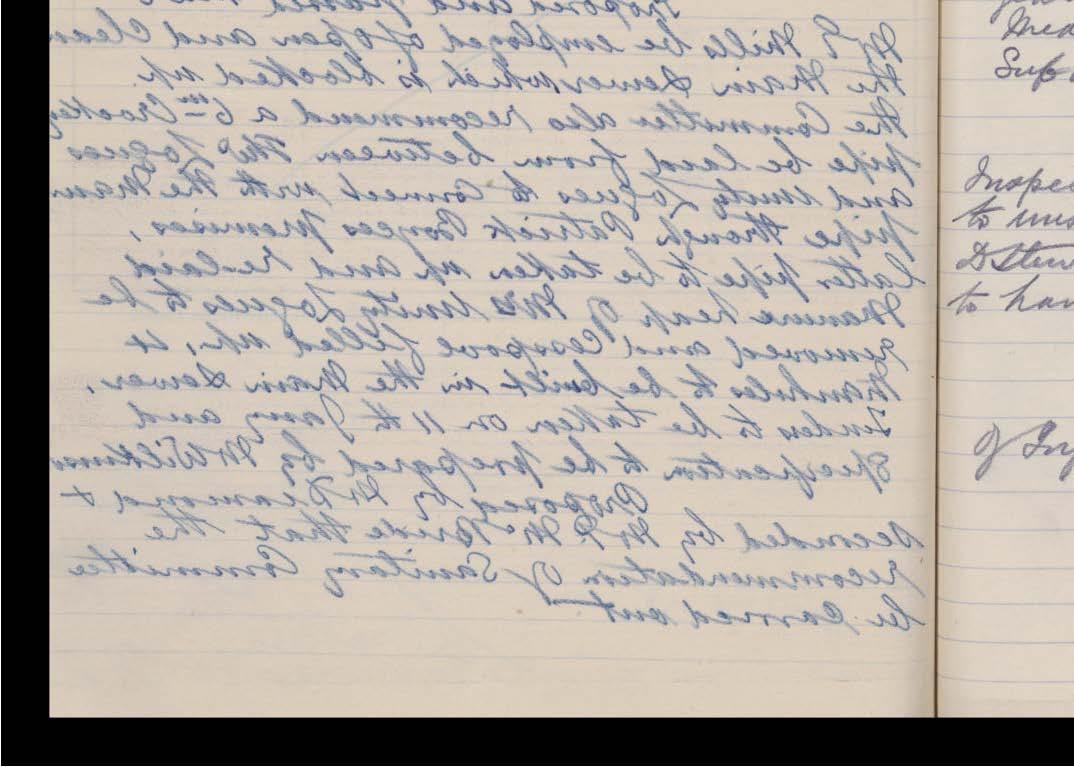 Proposed and passed
Mr E Mills be employed to open and Clean
the Main Sewer which is blocked up.
The Committee also recommend a 6 in Crockery
pipe be laid from between Thos Logues
and Unity Logues to connect with the Main
pipe through Patrick Boyces premises,
latter pipe to be taken up and re-laid
Manure heap of Mrs Unity Logues to be
removed and Cesspool filled up, 4
Manholes to be built in the Main Sewer.
Tender to be taken on 11th Jany and
Specification to be prepared by Mr Wilkinson
Proposed by Mr Diamond &
Seconded by Mr P. McBride that the
recommendation of Sanitary Committee
be carried out
Mea
Sub
Inspec
to
to han
of